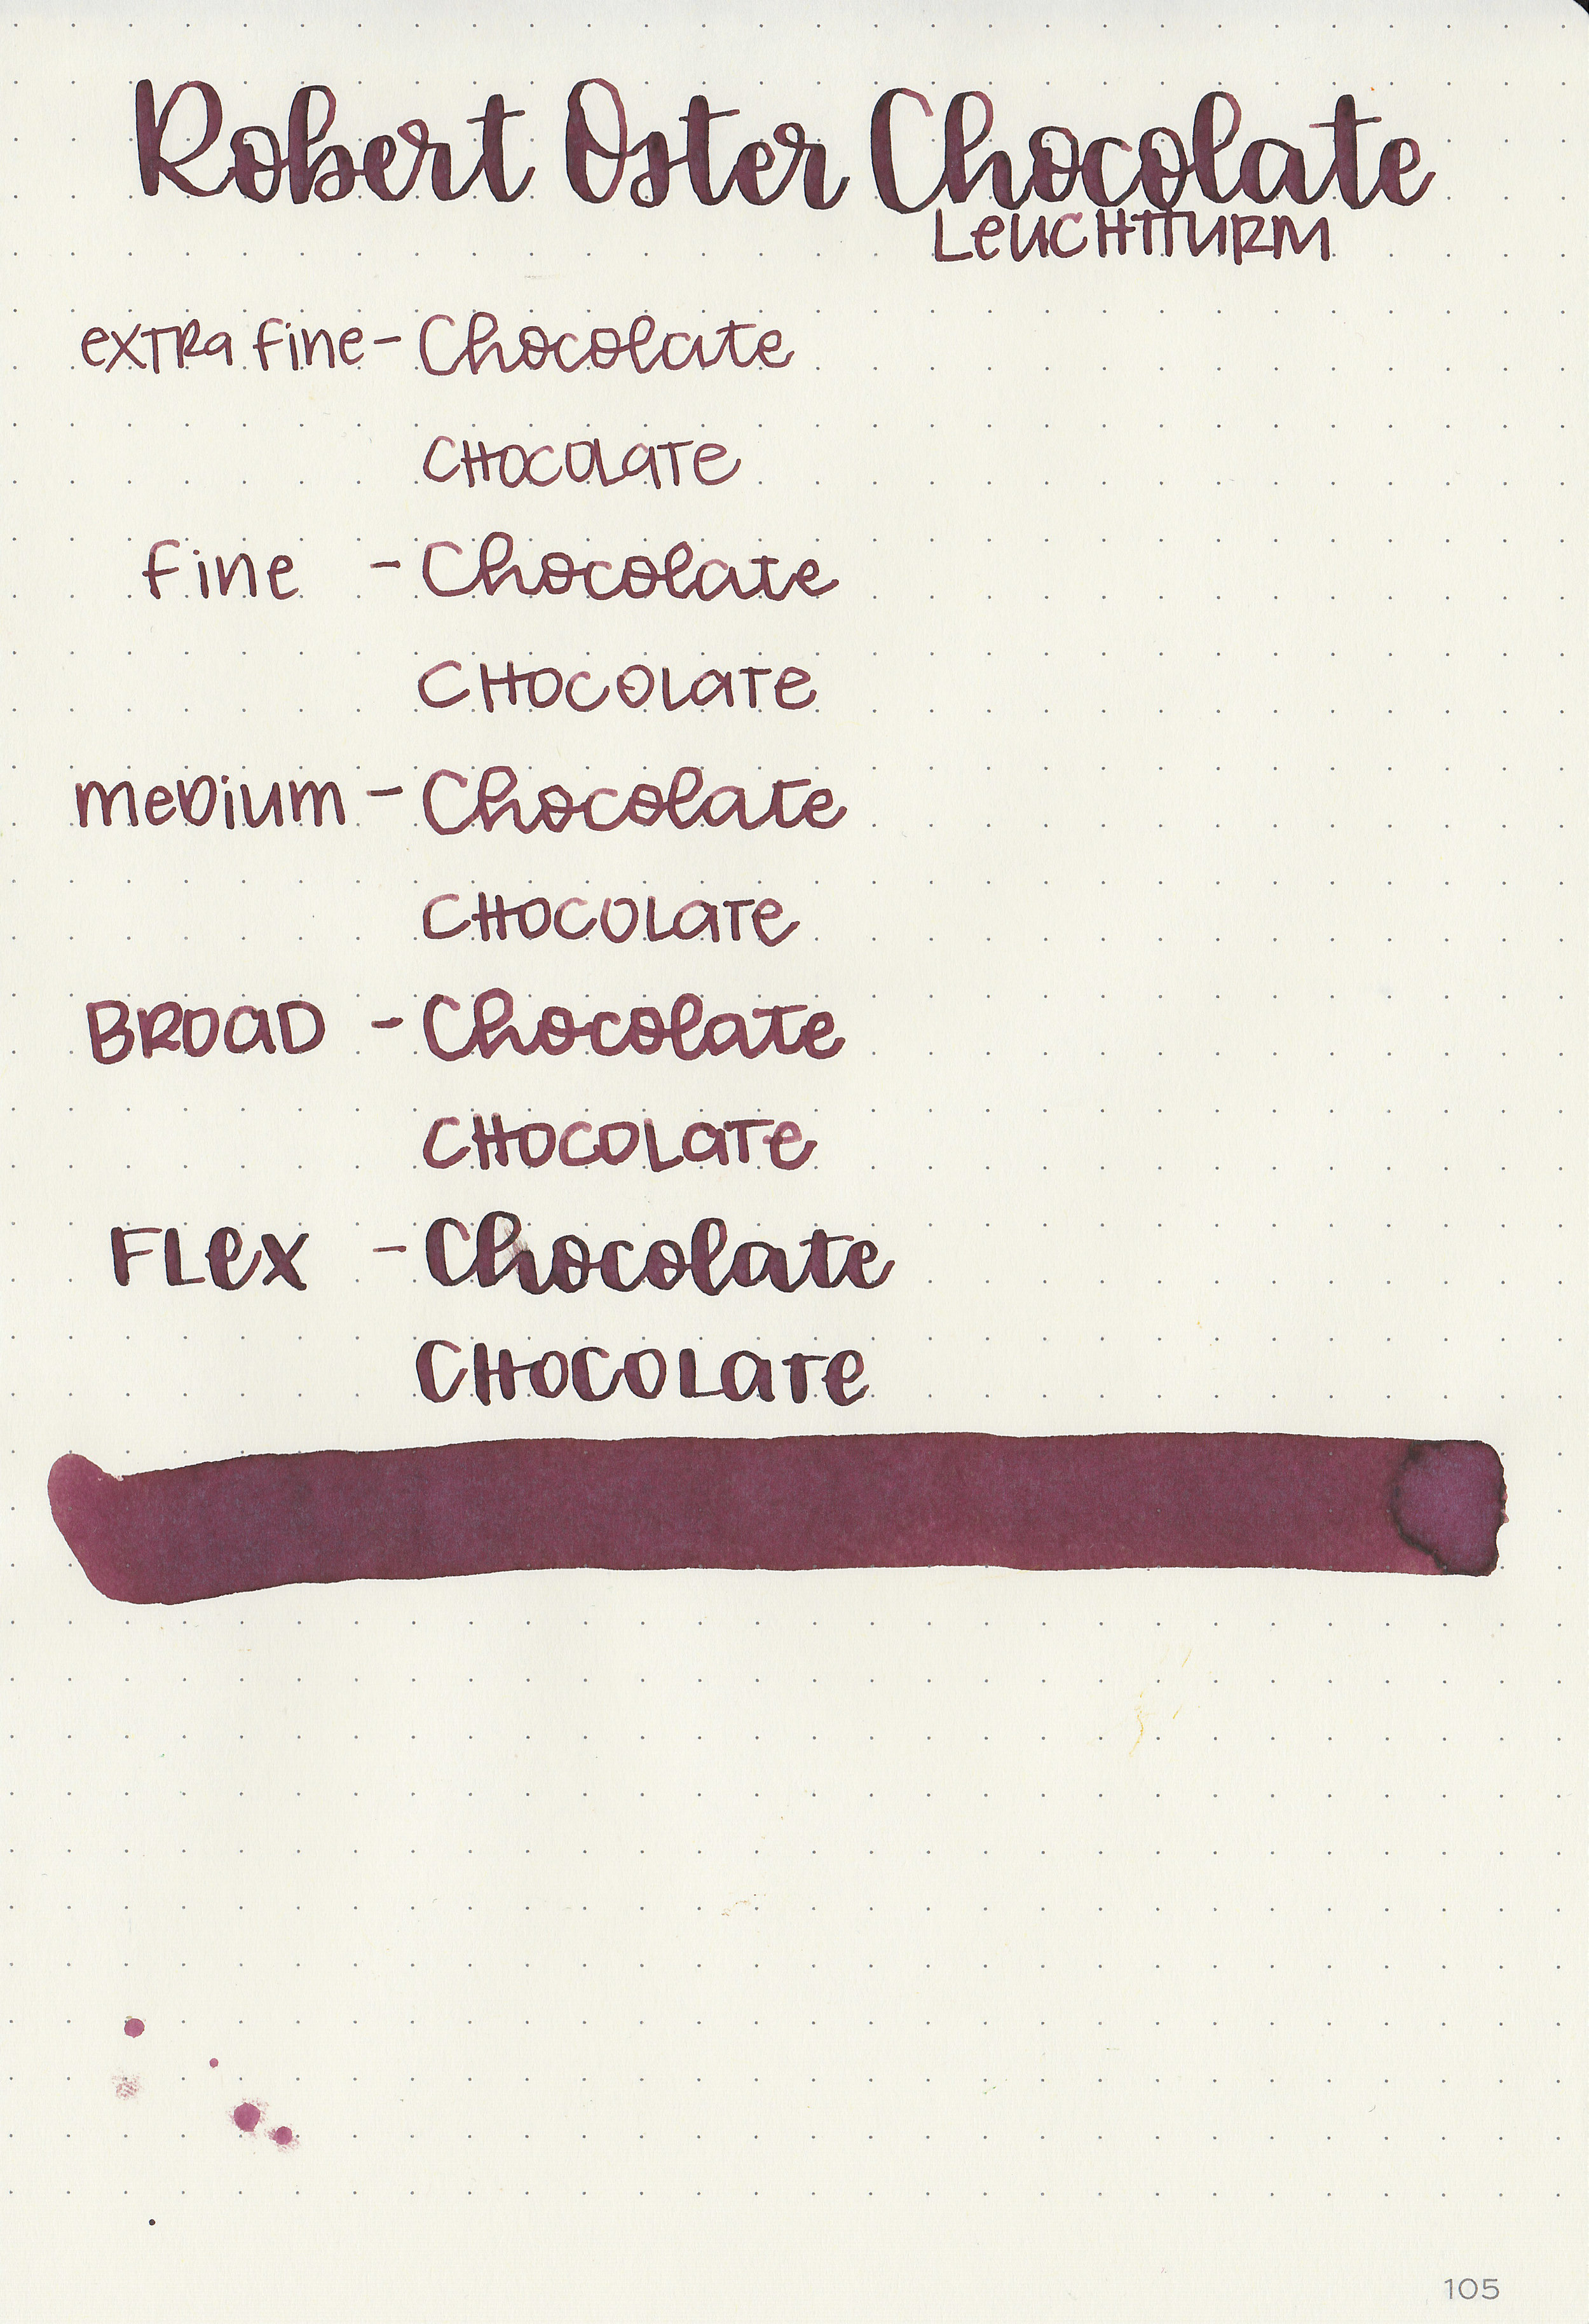 Robert Oster Chocolate
Leuchtturm
extra fine - Chocolate
Chocolate
fine - Chocolate
Chocolate
medium - Chocolate
Chocolate
Broad - Chocolate
Chocolate
Flex - Chocolate
Chocolate
105